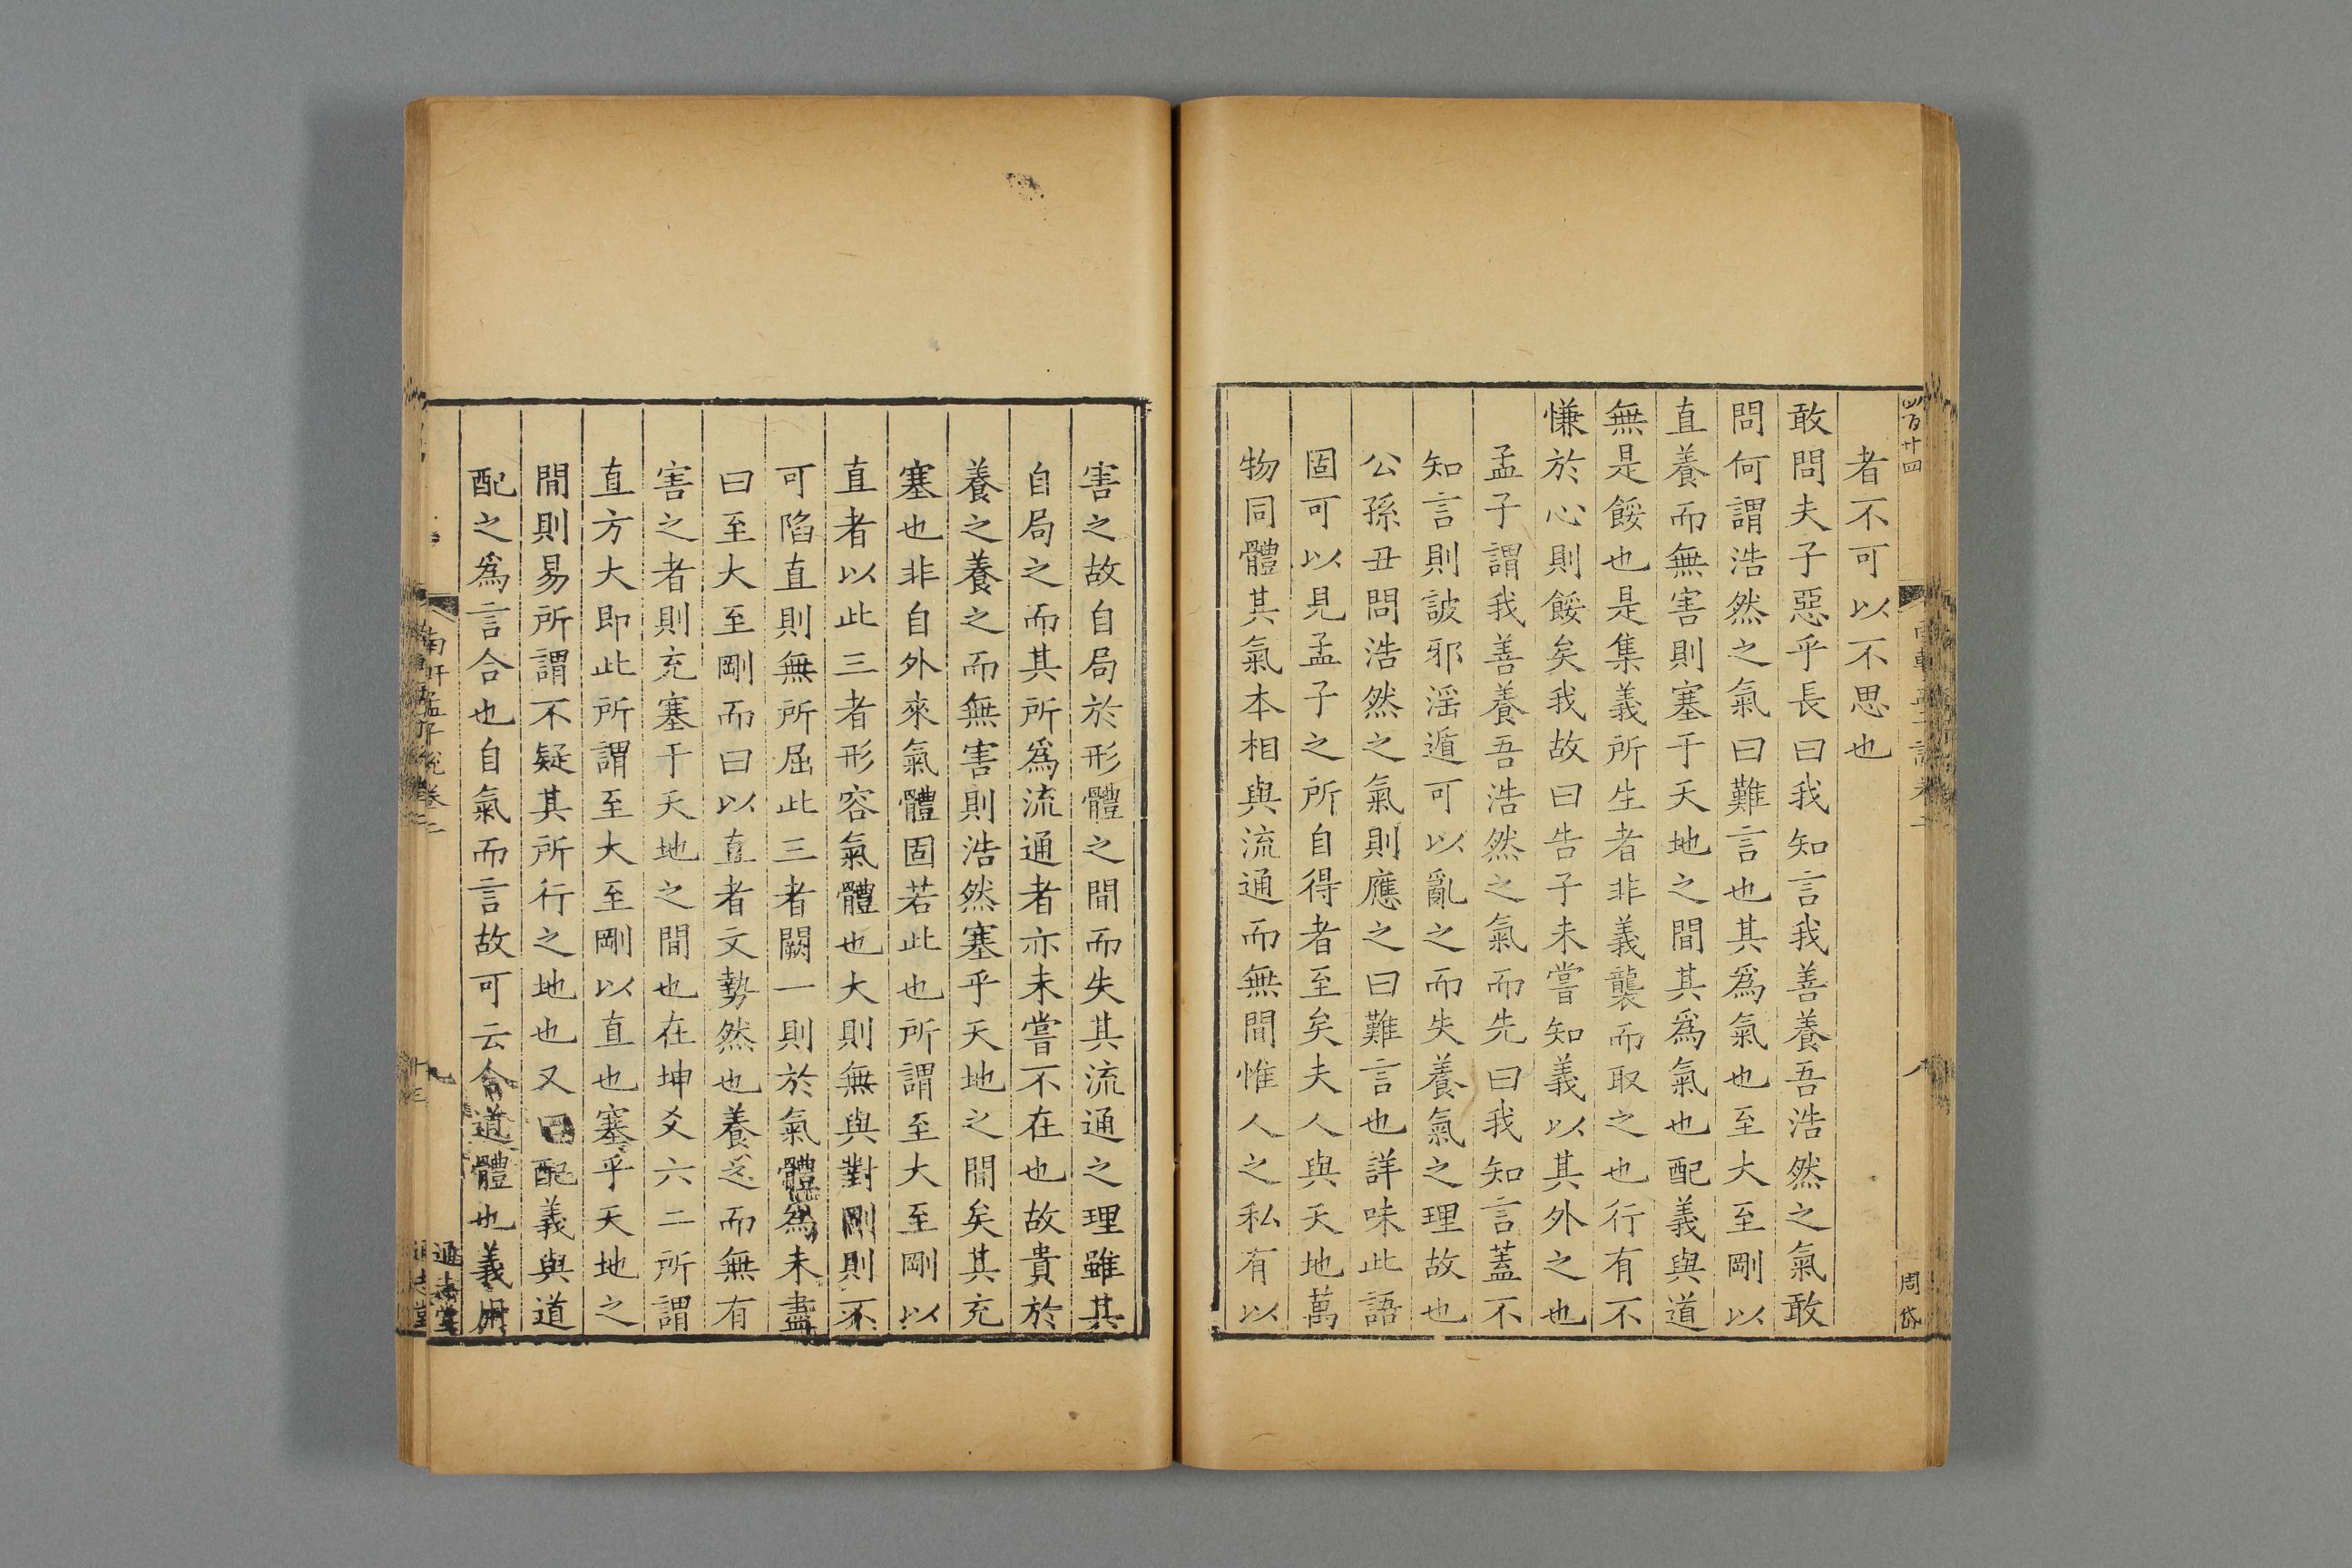 者不可以不思也
敢問夫子惡乎長曰我知言我善養吾浩然之氣敢
問何謂浩然之氣曰難言也其爲氣也至大至剛以
直養而無害則塞于天地之間其爲氣也配義與道
無是餒也是集義所生者非義襲而取之也行有不
慊於心則餒矣我故曰告子未嘗知義以其外之也
孟子謂我善養吾浩然之氣而先曰我知言蓋不
知言則詖邪淫遁可以亂之而失養氣之理故也
公孫丑問浩然之氣則應之曰難言也詳味此語
固可以見孟子之所自得者至矣夫人與天地萬
物同體其氣本相與流通而無間惟人之私有以
周岱
害之故自局於形體之間而失其流通之理雖其
自局之而其所爲流通者亦未嘗不在也故貴於
養之養之而無害則浩然塞乎天地之間矣其充
塞也非自外來氣體固若此也所謂至大至剛以
直者以此三者形容氣體也大則無與對剛則不
可陷直則無所屈此三者闕一則於氣體爲未盡
曰至大至剛而曰以直者文勢然也養之而無有
害之者則充塞于天地之間也在坤爻六二所謂
直方大即此所謂至大至剛以直也塞乎天地之
間則易所謂不疑其所行之地也又曰配義與道
配之爲言合也自氣而言故可云合道體也義用
南軒孟子說卷二
通志堂